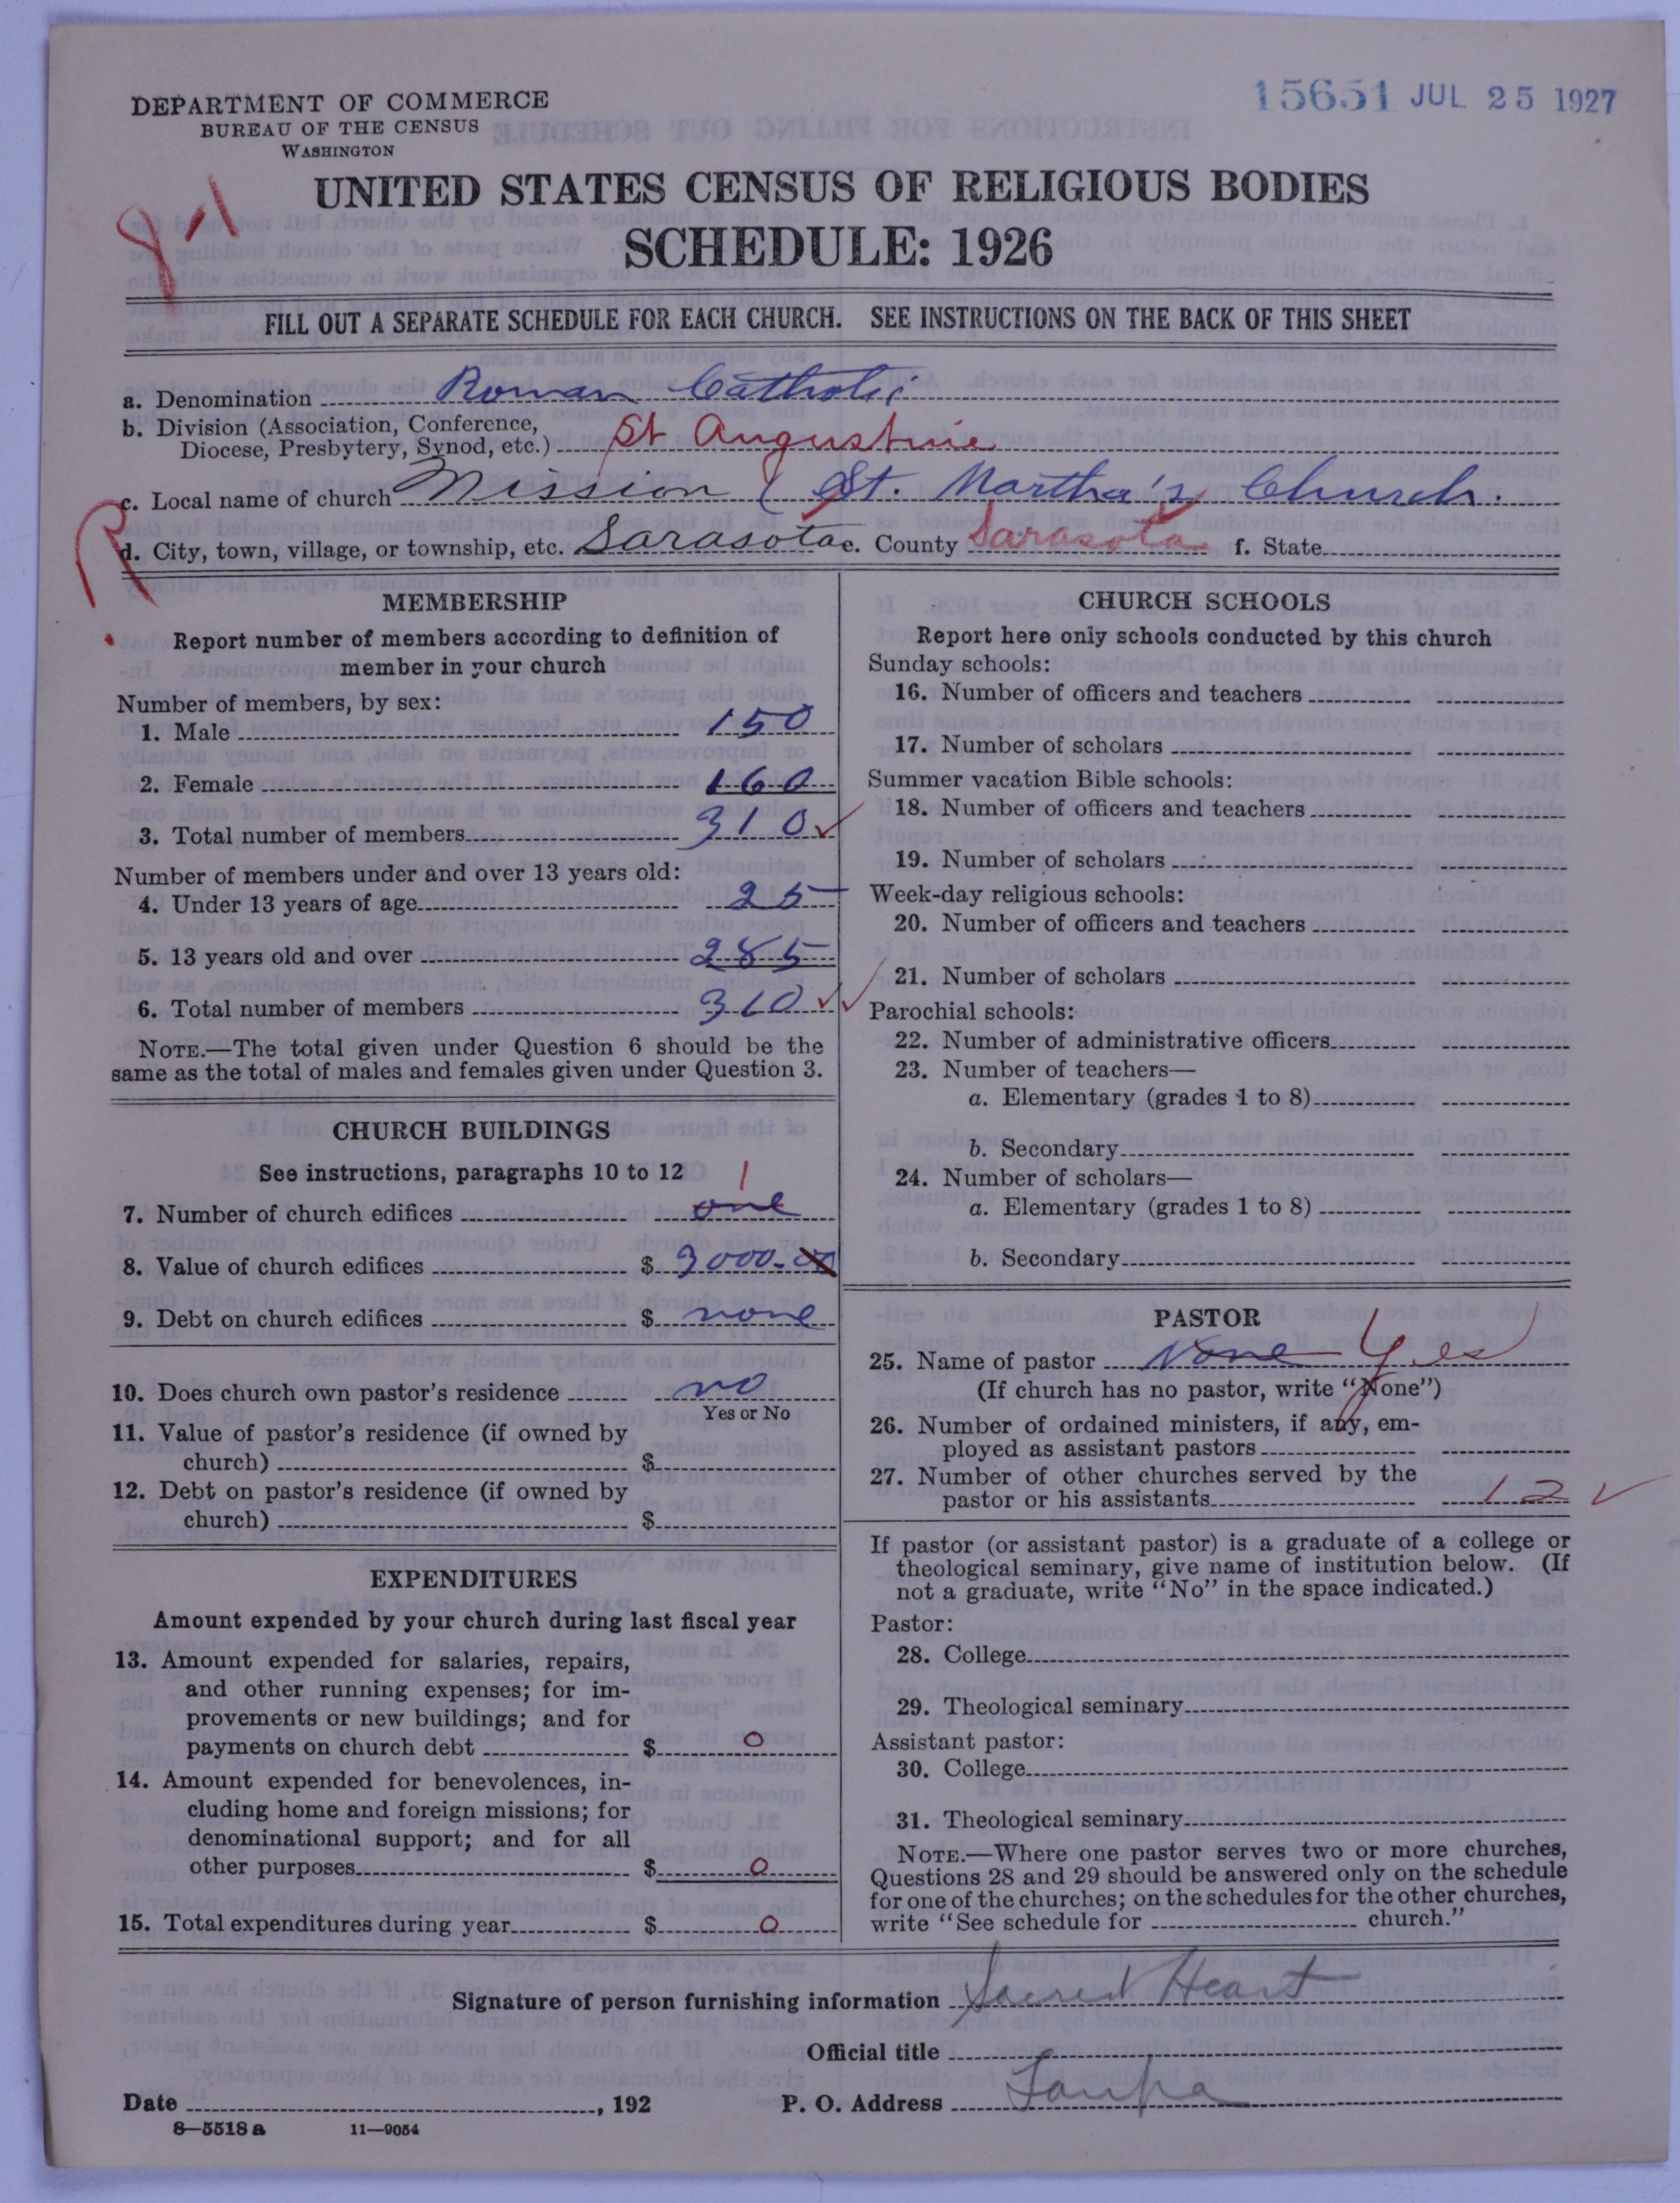 15651 JUL 25 1927
DEPARTMENT OF COMMERCE
BUREAU OF THE CENSUS
WASHINGTON
UNITED STATES CENSUS OF RELIGIOUS BODIES
SCHEDULE: 1926
FILL OUT A SEPARATE SCHEDULE FOR EACH CHURCH. SEE INSTRUCTIONS ON THE BACK OF THIS SHEET
a. Denomination Roman Catholic
b. Division (Association, Conference,
Diocese, Presbytery, Synod, etc.) St Augustine
c. Local name of church Mission ( St. Martha's Church.
d. City, town, village, or township, etc. Sarasota e. County Sarasota f. State
MEMBERSHIP
Report number of members according to definition of
member in your church
Number of members, by sex:
1. Male 150
2. Female 160
3. Total number of members 310
Number of members under and over 13 years old:
4. Under 13 years of age 25
5. 13 years old and over 285
6. Total number of members 310
NOTE.—The total given under Question 6 should be the
same as the total of males and females given under Question 3.
CHURCH BUILDINGS
See instructions, paragraphs 10 to 12
1
7. Number of church edifices one
8. Value of church edifices $ 3000.00
9. Debt on church edifices $ none
10. Does church own pastor's residence no
Yes or No
11. Value of pastor's residence (if owned by
church) $
12. Debt on pastor's residence (if owned by
church) $
EXPENDITURES
Amount expended by your church during last fiscal year
13. Amount expended for salaries, repairs,
and other running expenses; for im-
provements or new buildings; and for
payments on church debt $ 0
14. Amount expended for benevolences, in-
cluding home and foreign missions; for
denominational support; and for all
other purposes $ 0
15. Total expenditures during year $ 0
CHURCH SCHOOLS
Report here only schools conducted by this church
Sunday schools:
16. Number of officers and teachers
17. Number of scholars
Summer vacation Bible schools:
18. Number of officers and teachers
19. Number of scholars
Week-day religious schools:
20. Number of officers and teachers
21. Number of scholars
Parochial schools:
22. Number of administrative officers
23. Number of teachers—
a. Elementary (grades 1 to 8)
b. Secondary
24. Number of scholars—
a. Elementary (grades 1 to 8)
b. Secondary
PASTOR
25. Name of pastor None Yes
(If church has no pastor, write "None")
26. Number of ordained ministers, if any, em-
ployed as assistant pastors
27. Number of other churches served by the
pastor or his assistants 12
If pastor (or assistant pastor) is a graduate of a college or
theological seminary, give name of institution below. (If
not a graduate, write "No" in the space indicated.)
Pastor:
28. College
29. Theological seminary
Assistant pastor:
30. College
31. Theological seminary
NOTE.—Where one pastor serves two or more churches,
Questions 28 and 29 should be answered only on the schedule
for one of the churches; on the schedules for the other churches,
write "See schedule for church."
Signature of person furnishing information Sacred Heart
Official title
Date , 192 P. O. Address Tampa
8—5518 a 11—9054